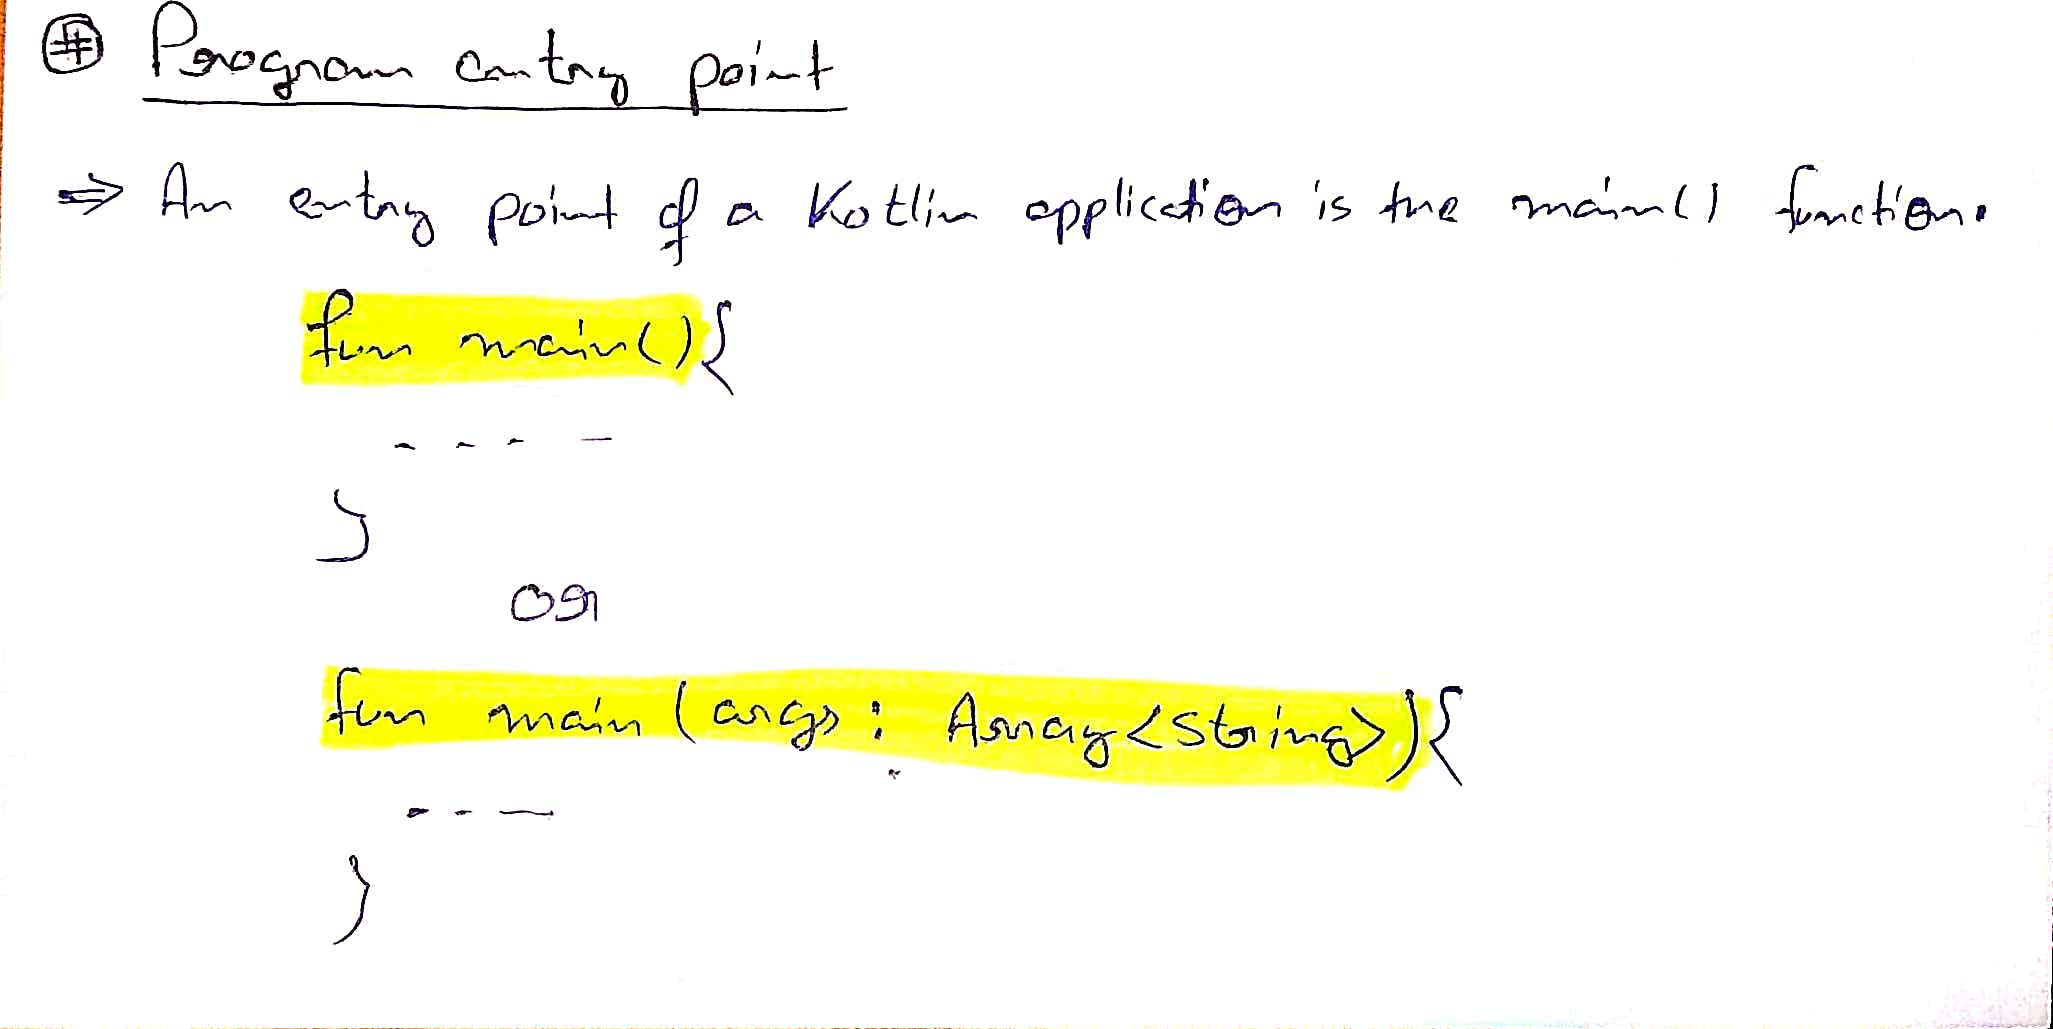 # Program entry point
⇒ An entry point of a Kotlin application is the main() function.
fun main(){
- - - -
}
or
fun main (args : Array<String>){
- - -
}